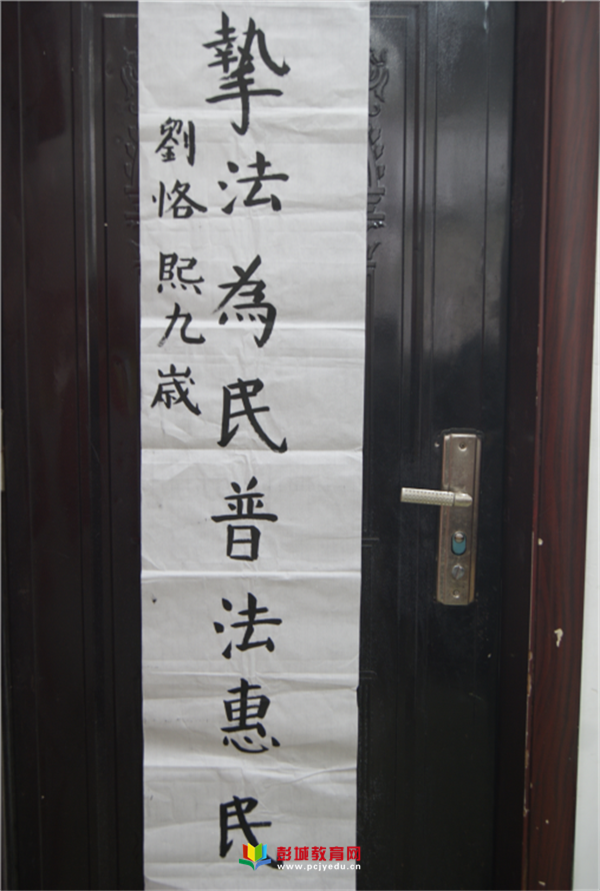 摯法為民普法惠民
劉恪熙九歲
彭城教育网
www.pcjyedu.cn